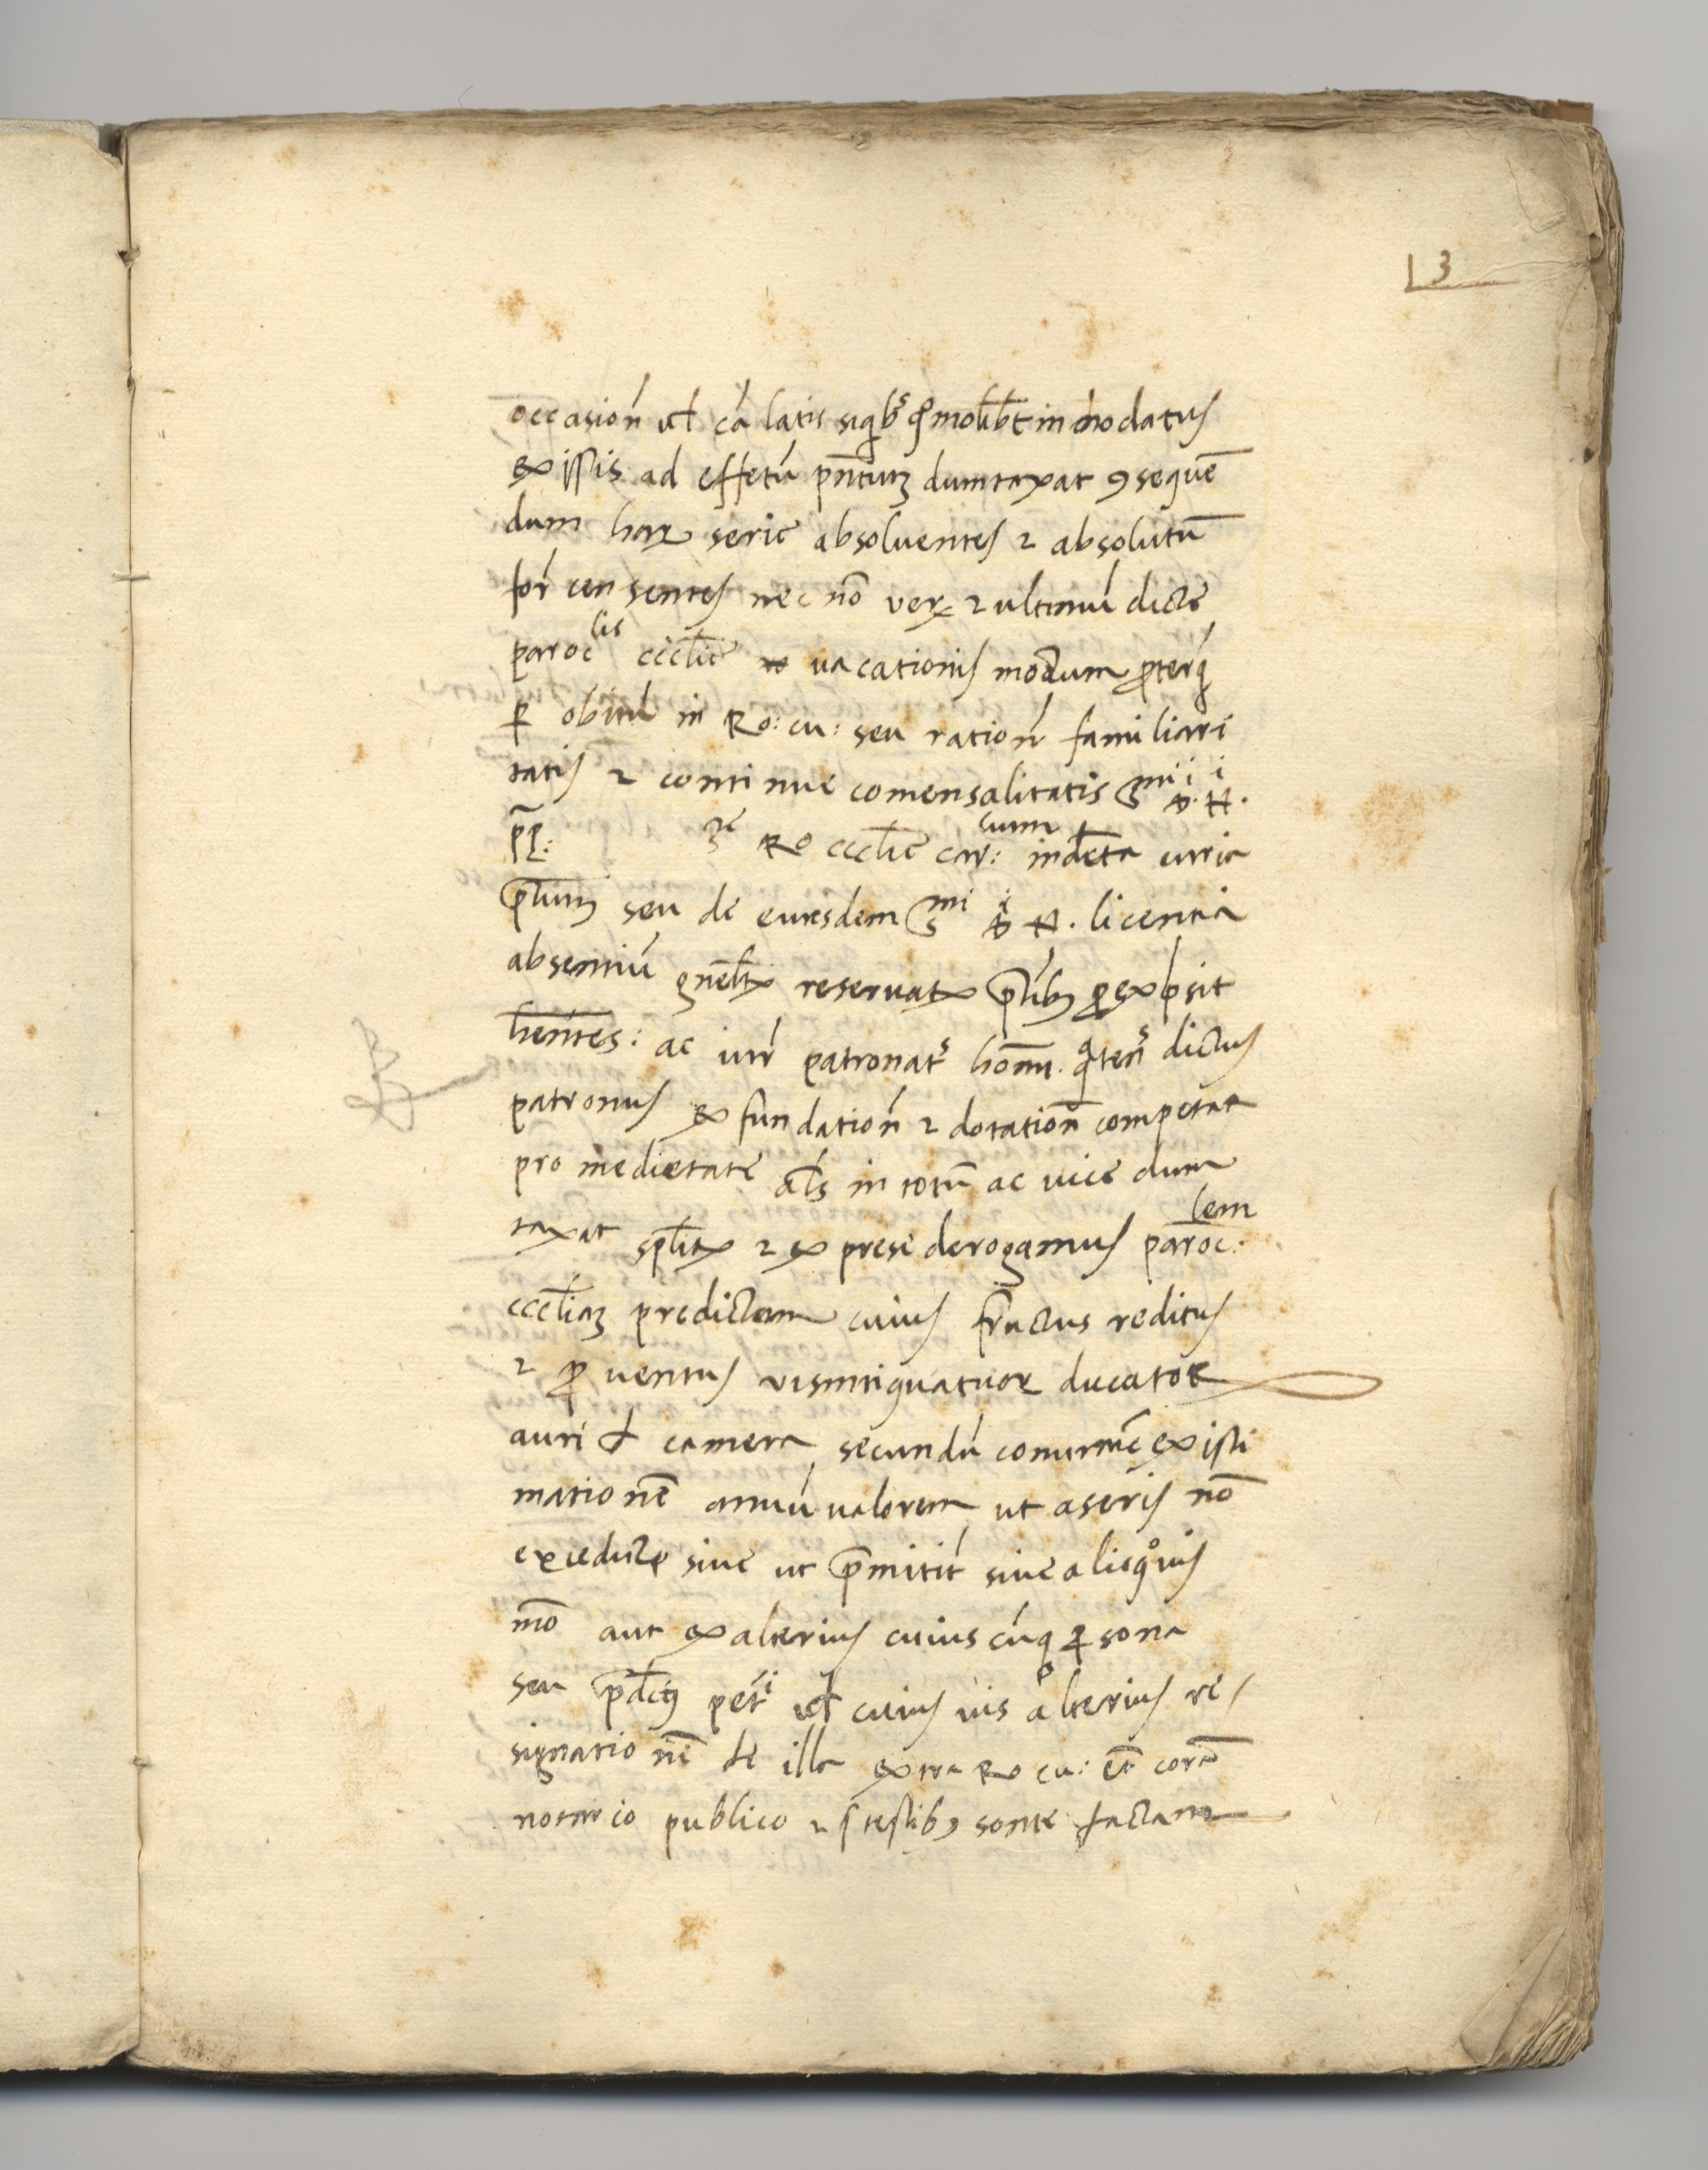 3
occasion̄ ul cā latis siqbs qmolibt in nodatus
ex istis ad effetū pn̄tium dumtaxat 9sequē
dum harȝ serie absoluentes 2 absolutū
for̄ censentes nec nō ver 2 ultimū dicte
paroclis ecclīe vacationis modum preterq̄
p obitū in Ro: cu: seu ration̄ familiari
tatis 2 continue comensalitatis Smi Di N.
pp: Ste Ro ecclīe car: cum indēta curia
pn̄tium seu de eiusdem Smi Di N. licentia
absentiū gn̄elr reservatx pn̄tibȝ pexpsit
hēntes: ac iuri patronats honn. qtens dictus
patronus ex fundation̄ 2 dotation̄ competat
pro medietate als in totū ac vice dum
taxat splitx 2 ex prese derogamus paroc:lem
eccliāȝ predictam cuius fructus reditus
2 pventus visintiquatuor ducator
auri d camera secundū comunē existi
mationē annuū valorem ut aseris nō
excedut sive ut pmititr sive alioquis
mō aut ex alterius cuiuscūq psona
seu pdctȝ petri ul cuius vis alterius re
signationē de illa extra Ro cu: et corā
notario publico 2 testibȝ sonte factam